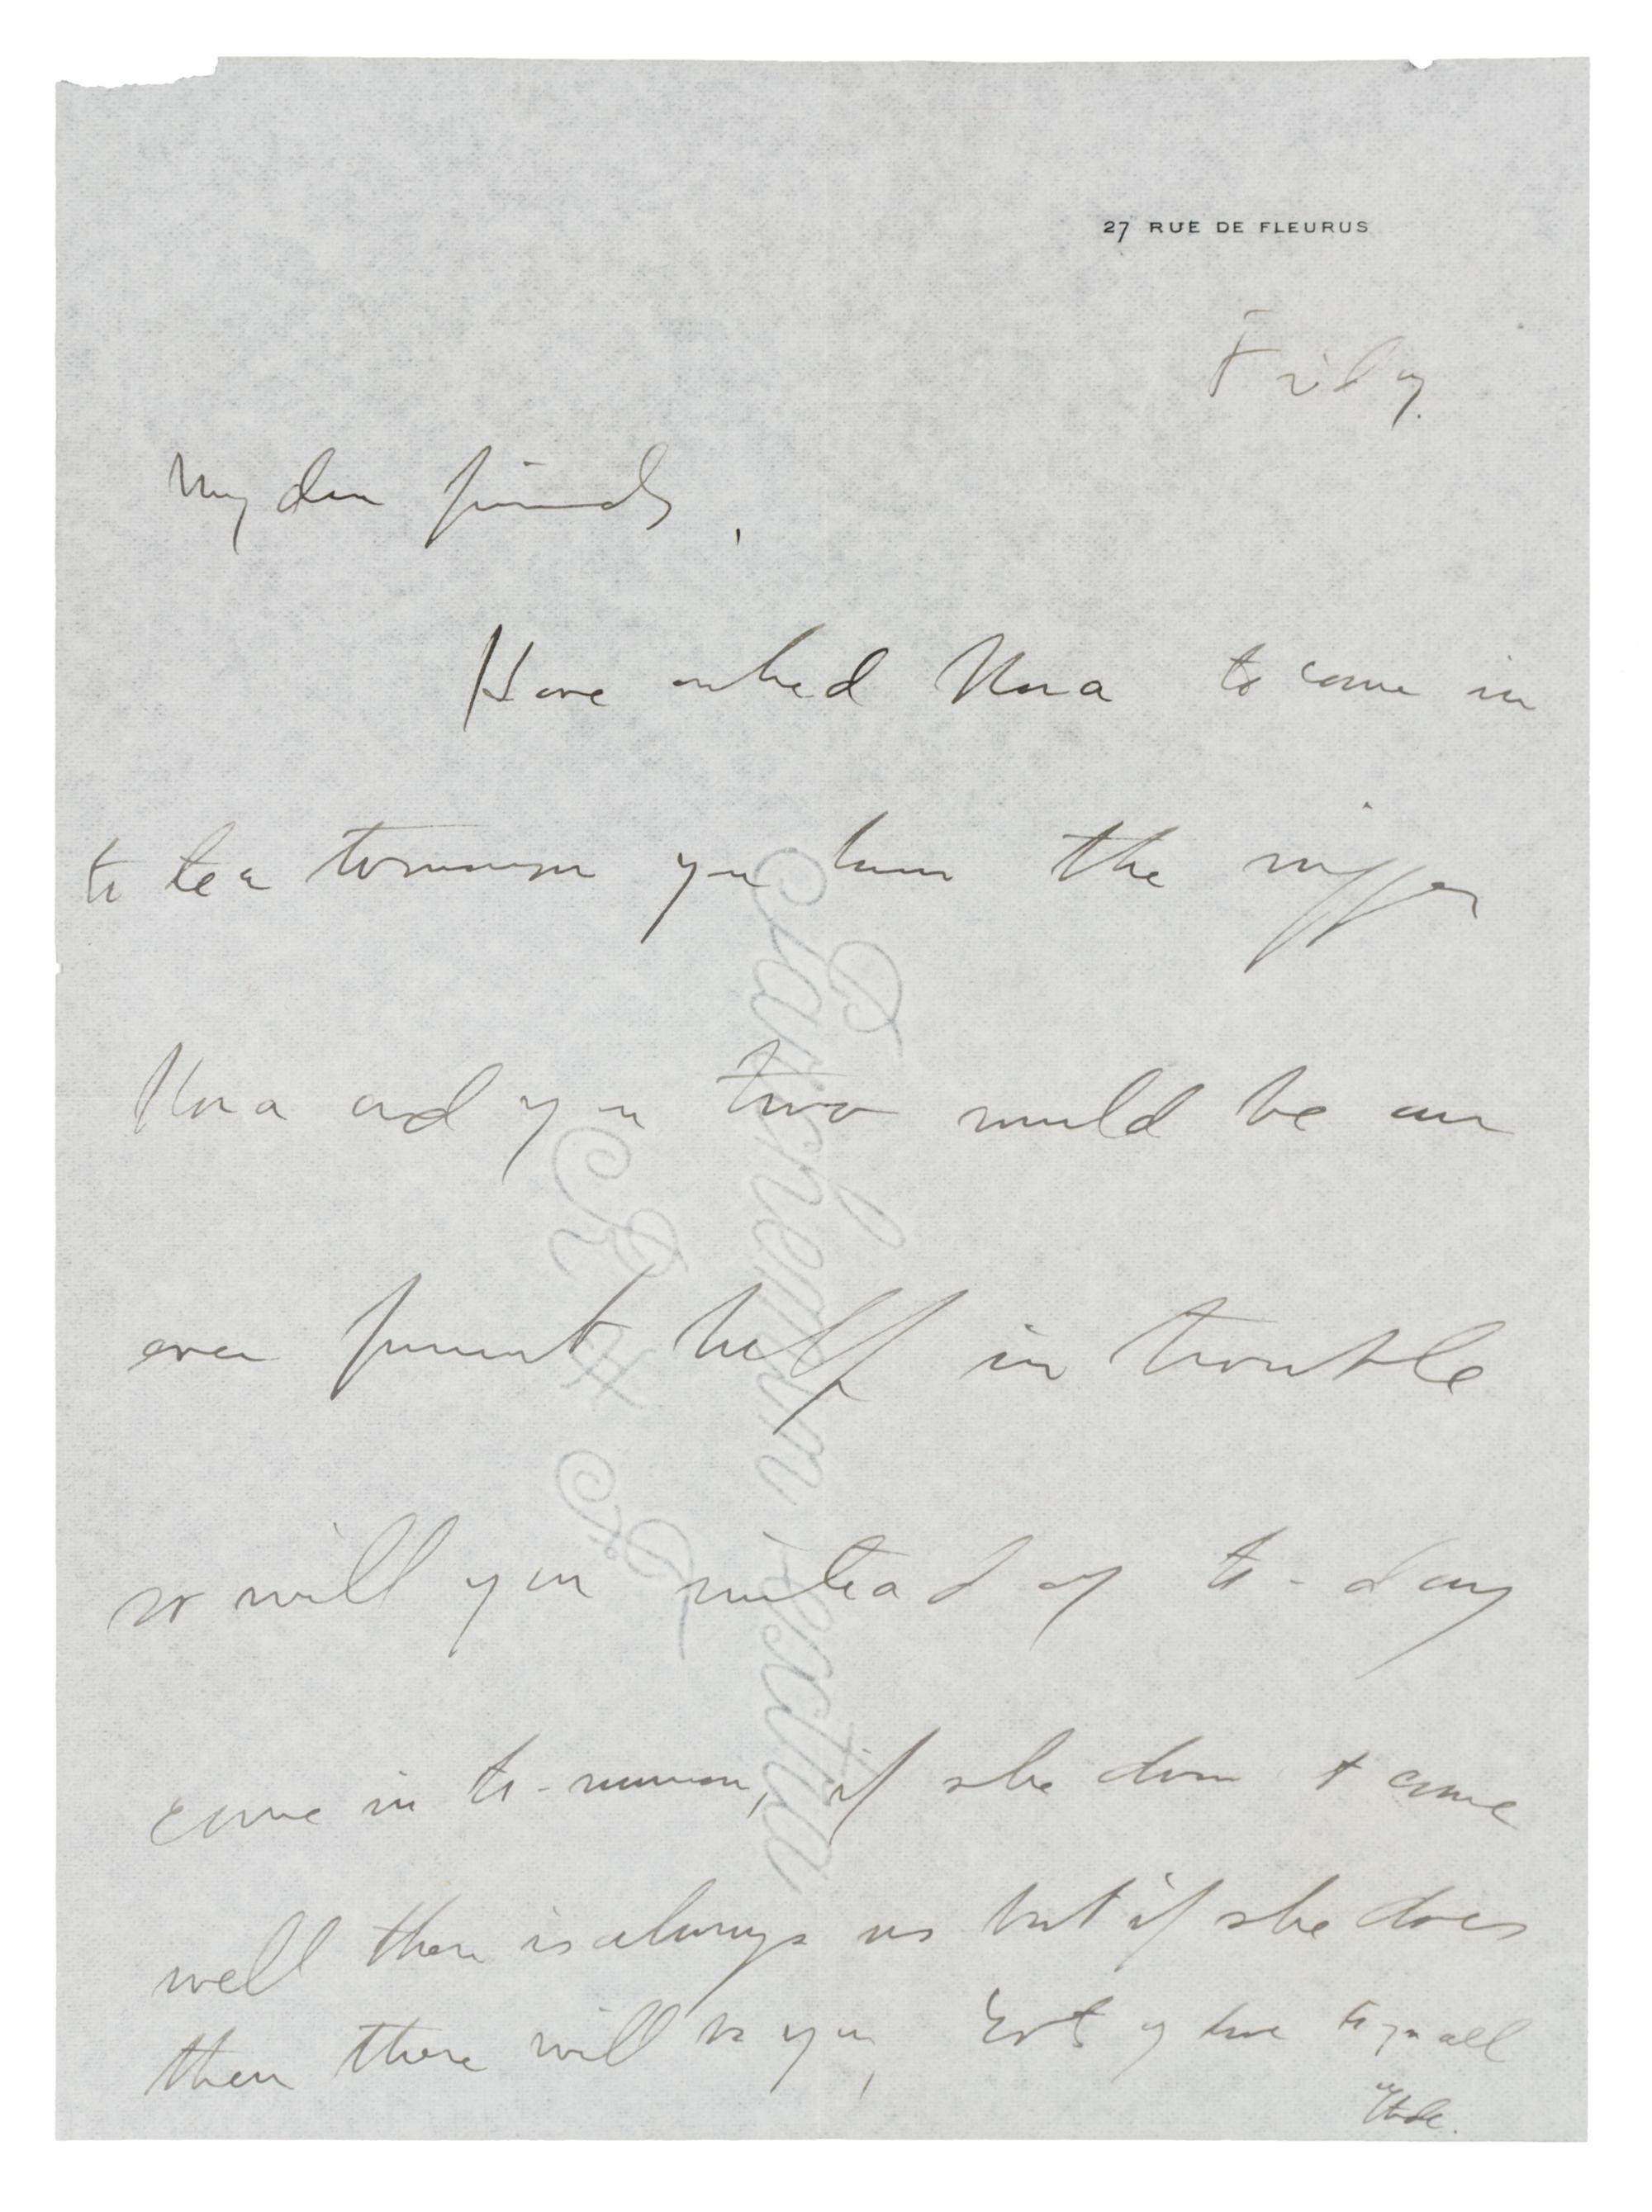 27 RUE DE FLEURUS
Friday.
My dear friends,
Have asked Nora to come in
to tea tomorrow you know the nigger
Nora and you two would be an
ever present help in trouble
so will you instead of to-day
come in to-morrow, if she doesn't come
well there is always us but if she does
then there will be you, Lots of love to you all